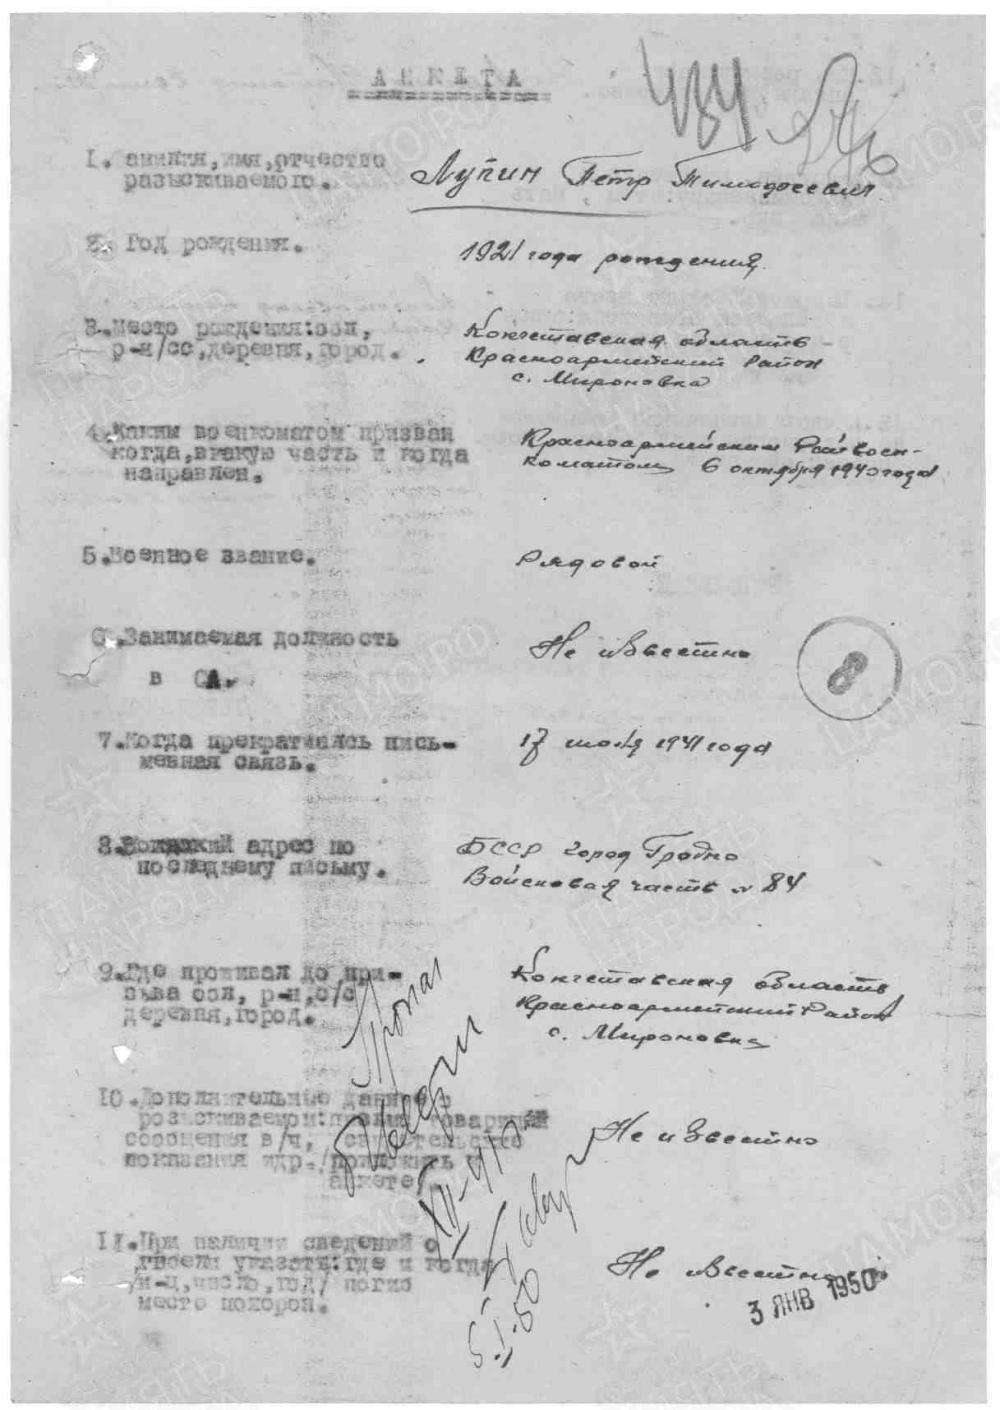 АНКЕТА
484
1. амилия, имя, отчество
разыскиваемого.
Лупин Петр Тимофеевич
2. Год рождения.
1921 года рождения
3. Место рождения: обл,
р-н/сс, деревня, город.
Кокчетавская область
Красноармейский Район
с. Мироновка
4. Каким военкоматом призван
когда, в какую часть и когда
направлен.
Красноармейским Райвоен-
коматом 6 октября 1940 года
5. Военное звание.
Рядовой
6. Занимаемая должность
в СА.
Не известно
8
7. Когда прекратилась пись-
менная связь.
17 1941 года
8. адрес по
последнему письму.
БССР город Гродно
Войсковая часть № 84
9. Где проживал до при-
зыва обл, р-н, с/с
деревня, город.
Кокчетавская область
Красноармейский Район
с. Мироновка
10. Дополнительные данные о
разыскиваемом: письма товарищей
сообщения в/ч, свидетельские
показания и др. /приложить к
анкете/.
Не известно
Пропал
б/вести
XII-41г
5.I.50
11. При наличии сведений о
гибели указать: где и когда
/м-ц, число, год/ погиб
место похорон.
Не известно
3 ЯНВ 1950